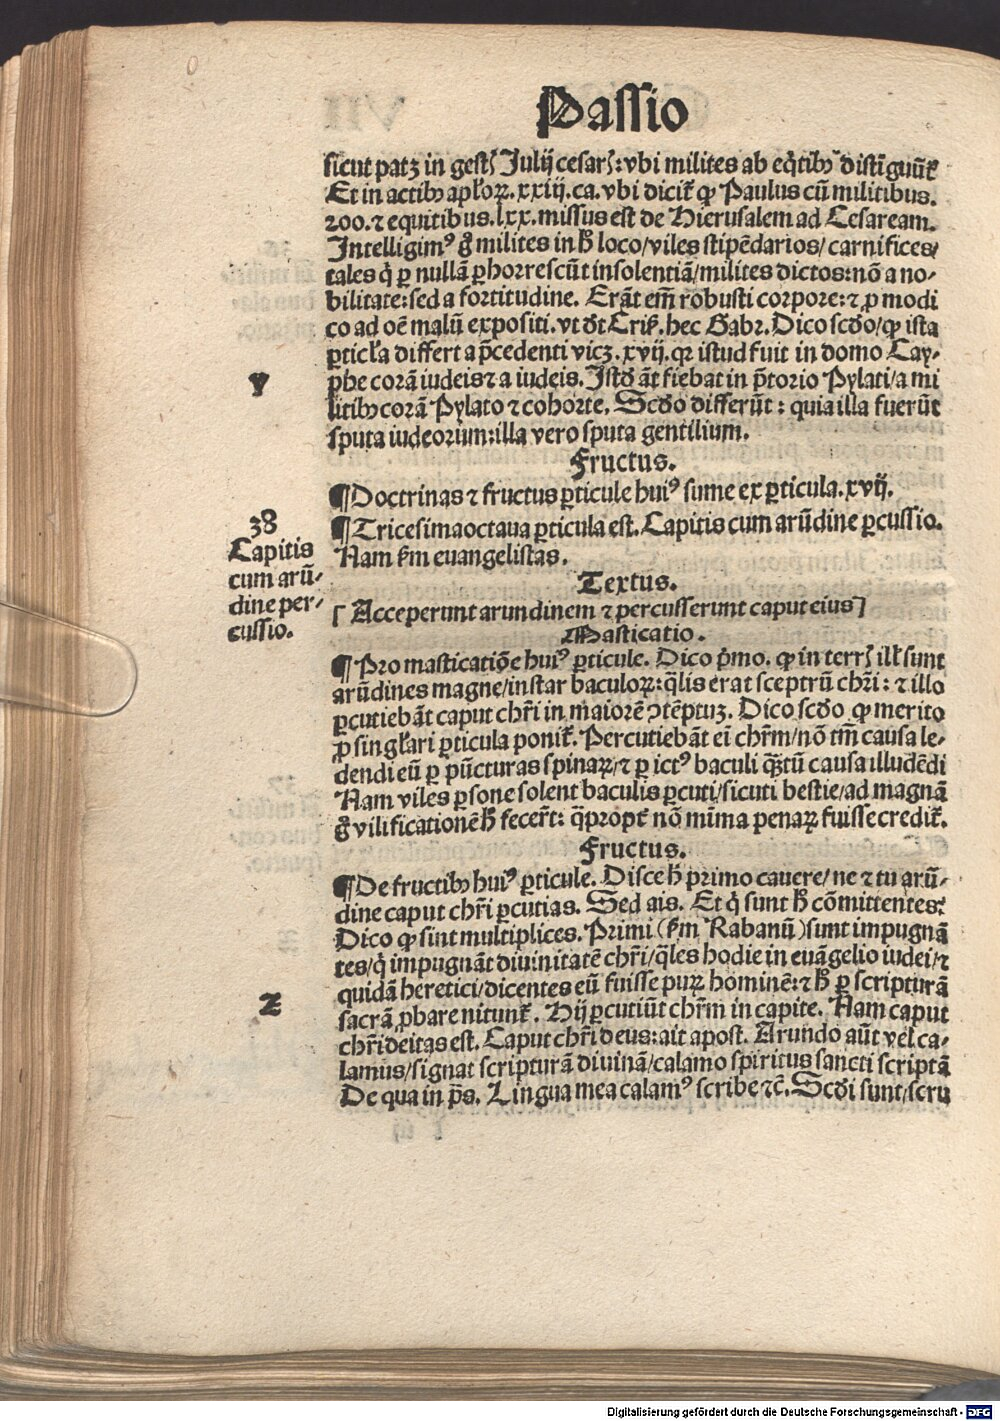 Passio
sicut patꝫ in gestꝭ Julij cesarꝭ: vbi milites ab eq̇tibꝰ distīguūt᷑
Et in actibꝰ apl'oꝝ. xxiij. ca. vbi dicit᷑ ꝙ Paulus cū militibus.
200. ⁊ equitibus. lxx. missus est de Hierusalem ad Cesaream.
Intelligimꝰ g̊ milites in h̊ loco/ viles stipēdarios/ carnifices/
tales q̇ ꝑ nullā ꝑhorrescūt insolentiā/ milites dictos: nō a no-
bilitate: sed a fortitudine. Erāt em̄ robusti corpore: ⁊ ꝓmodi
co ad oē malū expositi. vt dt Crisꝭ. hec Gabr. Dico scd̊o/ ꝙ ista
ꝑticl'a differt a p̄cedenti vicꝫ. xvij. qꝛ istud fuit in domo Cay-
phe corā iudeis ⁊ a iudeis. Istd̊ āt fiebat in p̄torio Pylati/ a mi
litibꝰ corā Pylato ⁊ cohorte. Scd̊o differūt: quia illa fuerūt
sputa iudeorum: illa vero sputa gentilium.
y
Fructus.
¶ Doctrinas ⁊ fructus ꝑticule huiꝰ sume ex ꝑticula. xvij.
38
Capitis
cum arū-
dine per-
cussio.
¶ Tricesimaoctaua ꝑticula est. Capitis cum arūdine ꝑcussio.
Nam ẜm euangelistas.
Textus.
[ Acceperunt arundinem ⁊ percusserunt caput eius ]
Masticatio.
¶ Pro masticatiōe huiꝰ ꝑticule. Dico p̄mo. ꝙ in terrꝭ ill' sunt
arūdines magne/ instar baculoꝝ: q̄lis erat sceptrū chr̄i: ⁊ illo
ꝑcutiebāt caput chr̄i in maiorē ꝯtēptuꝫ. Dico scd̊o ꝙ merito
ꝓ singl'ari ꝑticula ponit᷑. Percutiebāt ei chr̄m/ nō tm̄ causa le-
dendi eū ꝑ pūcturas spinaꝝ/ ⁊ ꝑ ictꝰ baculi q̄ꝫtū causa illudēdi
Nam viles ꝑsone solent baculis ꝑcuti/ sicuti bestie/ ad magnā
g̊ vilificationē h̊ fecer̄t: q̄propt᷑ nō mīma penaꝝ fuisse credit᷑.
Fructus.
¶ De fructibꝰ huiꝰ ꝑticule. Disce h̊ primo cauere/ ne ⁊ tu arū-
dine caput chr̄i ꝑcutias. Sed ais. Et q̇ sunt h̊ cōmittentes?
Dico ꝙ sint multiplices. Primi (ẜm Rabanū) sunt impugnā
tes/ q̇ impugnāt diuinitatē chr̄i/ q̄les hodie in euāgelio iudei/ ⁊
quidā heretici/ dicentes eū fuisse puꝝ hominē: ⁊ h̊ ꝑ scripturā
z
sacrā ꝓbare nitunt᷑. Hij ꝑcutiūt chr̄m in capite. Nam caput
chr̄i deitas est. Caput chr̄i deus: ait apost. Arundo aūt vel ca-
lamus/ signat scripturā diuinā/ calamo spiritus sancti scriptā
De qua in p̄s. Lingua mea calamꝰ scribe ⁊c̄. Scd̊i sunt/ scru
Digitalisierung gefördert durch die Deutsche Forschungsgemeinschaft - DFG